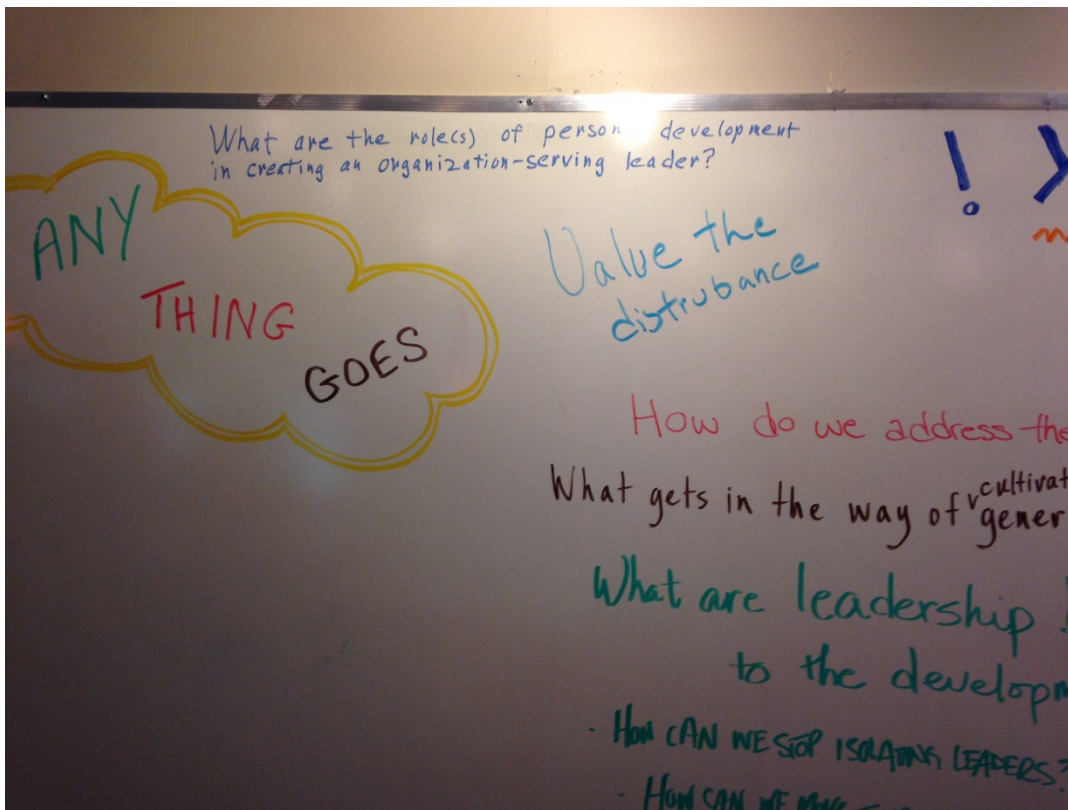 What are the role(s) of person development
in creating an organization-serving leader?
ANY
THING
GOES
Value the
distrubance
!
How do we address the
What gets in the way of
What are leadership
to the
HOW CAN WE STOP ISOLATING LEADERS?
HOW CAN WE